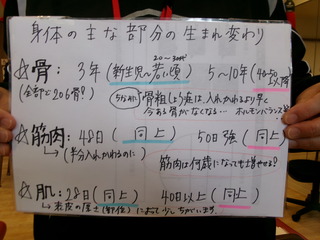 身体の主な部分の生まれ変わり
20〜30才
☆骨: 3年(新生児〜若い頃) 5〜10年(40才以降)
(全部で206骨?) ちなみに「骨粗しょう症は、入れかわるより早く
今ある骨がなくなる… ホルモンバランス
☆筋肉: 48日(同上) 50日強(同上)
→(半分入れかわるのに) 筋肉は何歳になっても増やせる?
☆肌: 28日(同上) 40日以上(同上)
→表皮の厚さ(部位)によって少しちがいます。